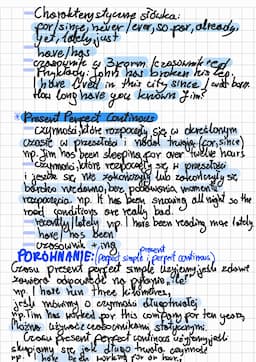 Charakterystyczne słówka:
for/since, never/ever, so far, already,
yet, lately, just
have/has
czasownik w 3 form / czasownik +ed
Przykłady: John has broken his leg.
I have lived in this city since I was born
How long have you known Jim?
Present Perfect Continous
czynności, które rozpoczęły się w określonym
czasie w przeszłości i nadal trwają (for, since)
np. Jim has been sleeping for over twelve hours
czynności, które rozpoczęły się w przeszłości
i jeszcze się nie zakończyły lub zakończyły się
bardzo niedawno, bez podawania momentu
rozpoczęcia np. It has been snowing all night so the
road conditions are really bad.
recently/lately np. I have been reading more lately
have/has been
czasownik + ing
PORÓWNANIE: (perfect simple i present perfect continous)
Czasu present perfect simple użyjemy jeśli zdanie
zawiera odpowiedź na pytanie „ile"
np. I have run three kilometres,
jeśli mówimy o czynności długotrwałej
np. Tim has worked for this company for ten years,
można używać z czasownikami statycznymi.
Czasu present perfect continous użyjemy jeśli
skupiamy się jak długo trwała czynność
np. I have been working for an hour.